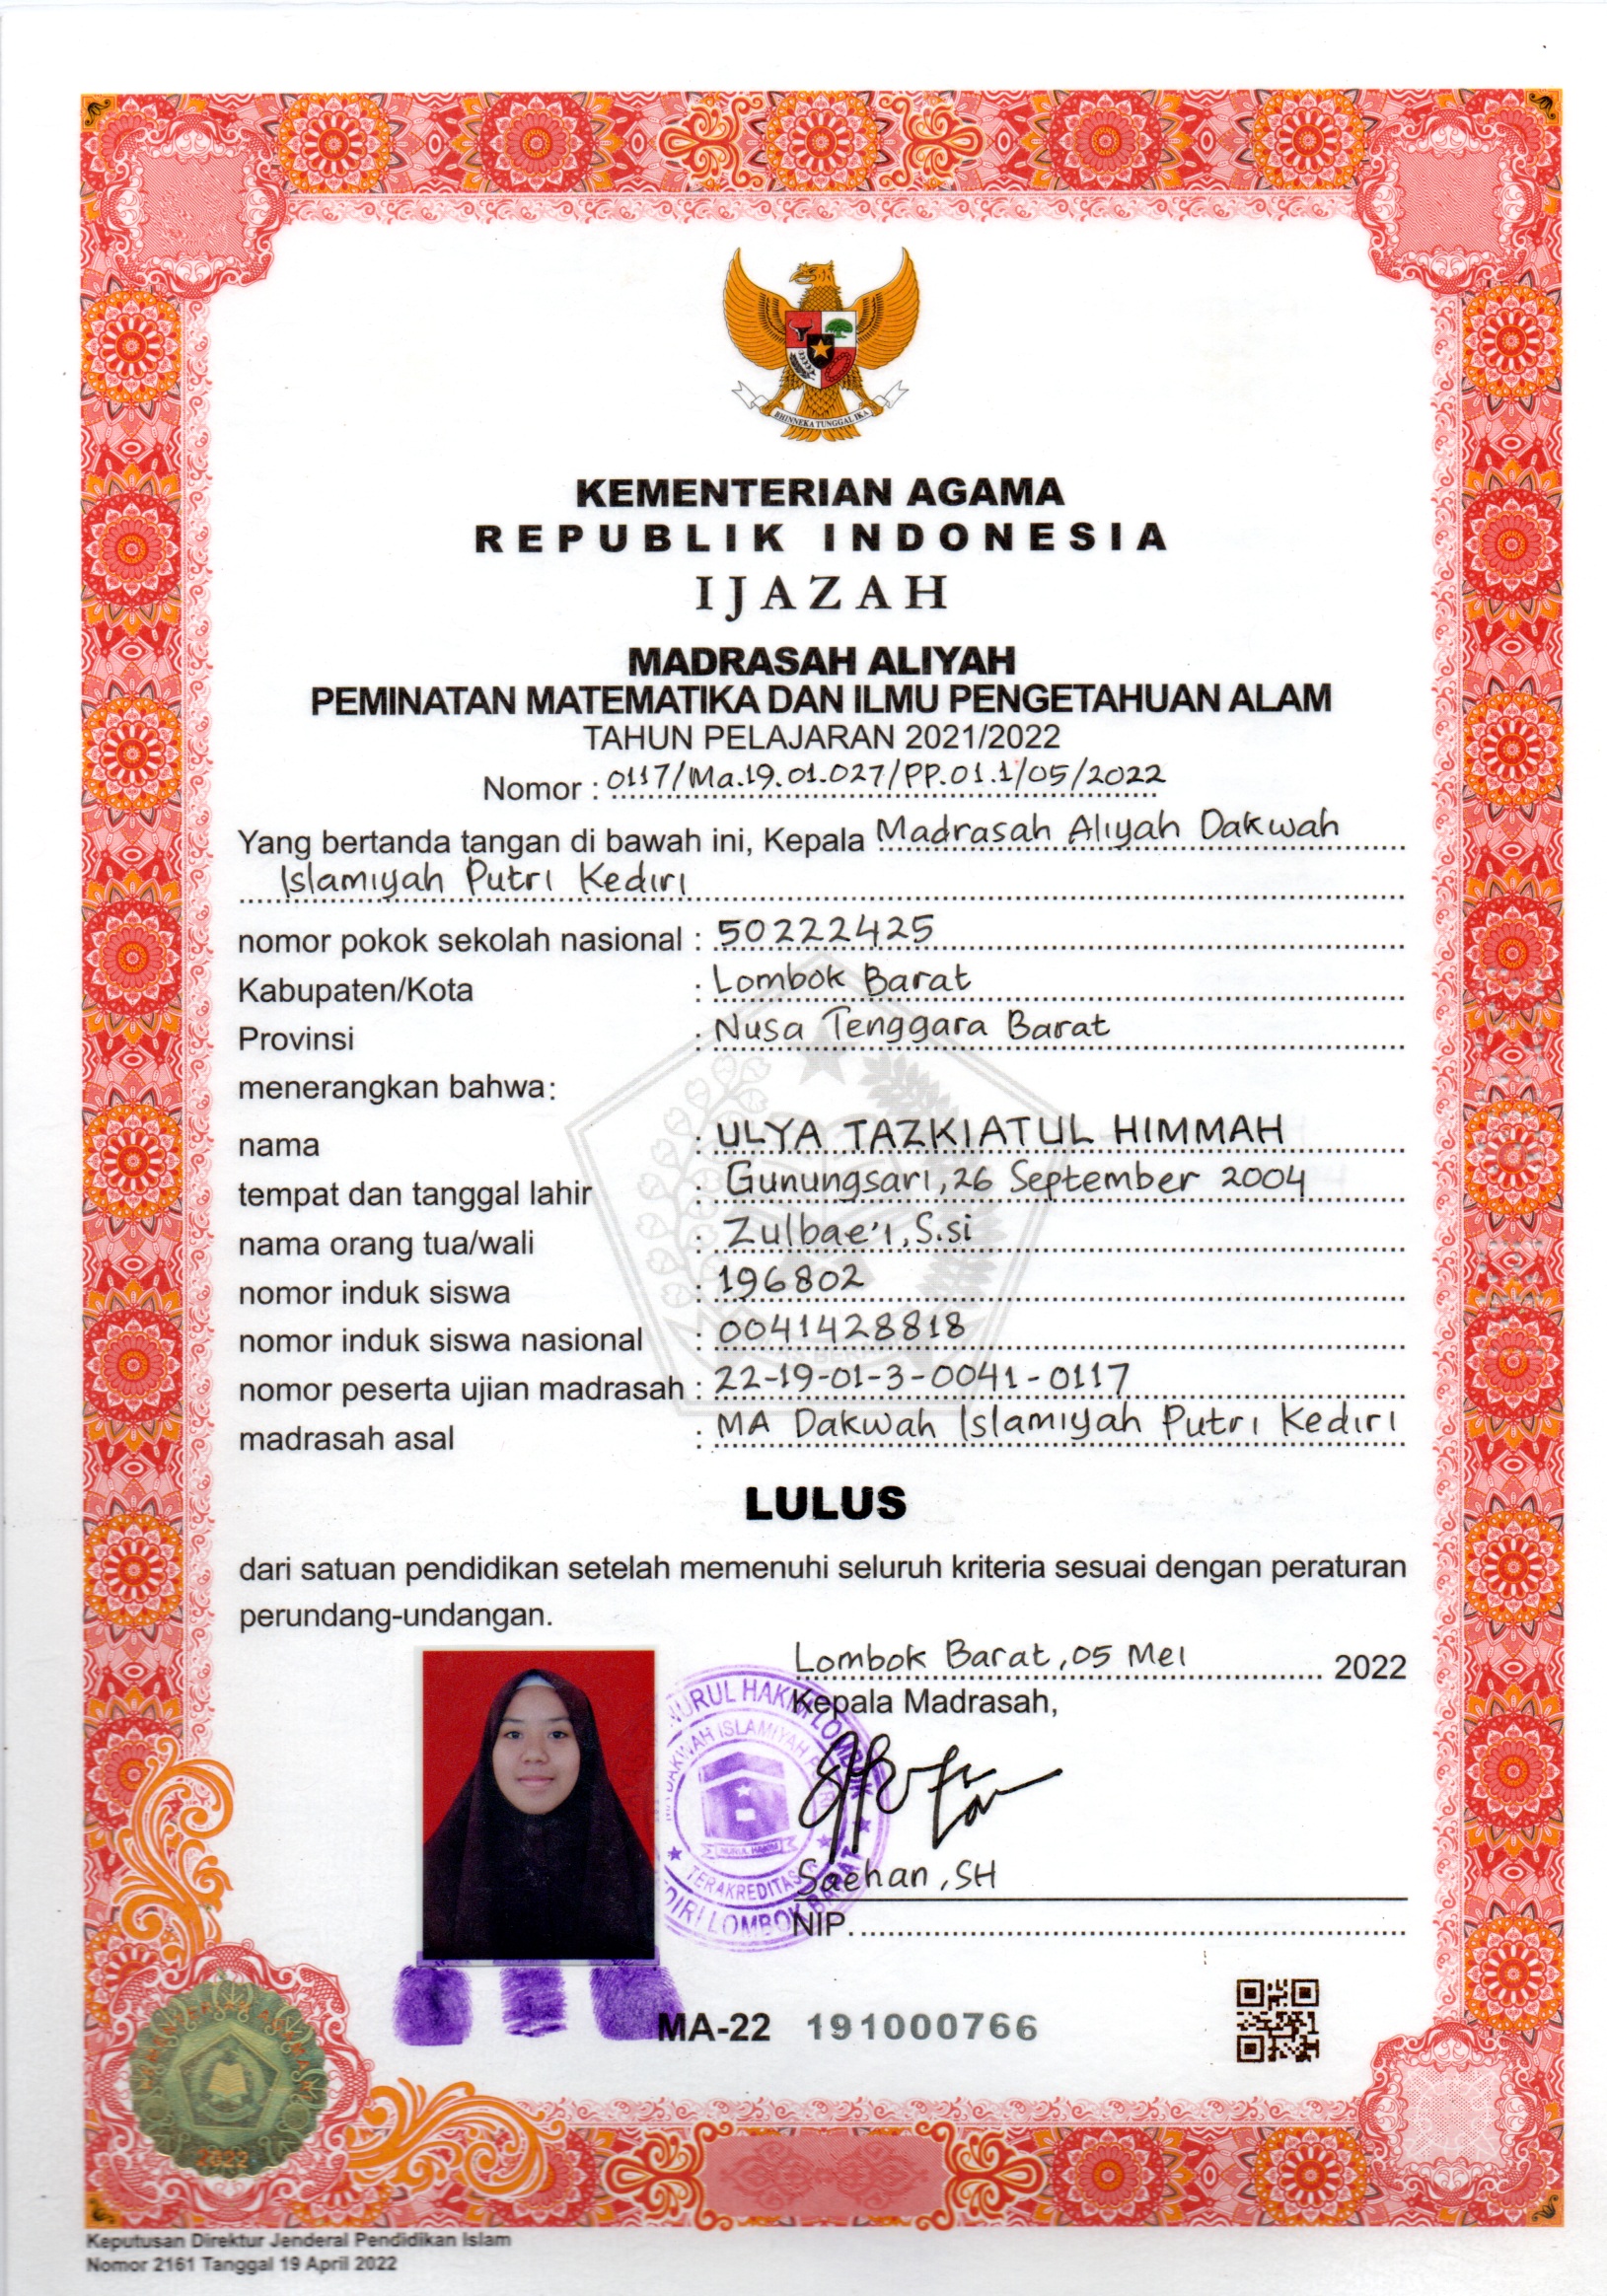 BHINNEKA TUNGGAL IKA
KEMENTERIAN AGAMA
REPUBLIK INDONESIA
IJAZAH
MADRASAH ALIYAH
PEMINATAN MATEMATIKA DAN ILMU PENGETAHUAN ALAM
TAHUN PELAJARAN 2021/2022
Nomor : 0117/Ma.19.01.027/PP.01.1/05/2022
Yang bertanda tangan di bawah ini, Kepala Madrasah Aliyah Dakwah
Islamiyah Putri Kediri
nomor pokok sekolah nasional : 50222425
Kabupaten/Kota : Lombok Barat
Provinsi : Nusa Tenggara Barat
menerangkan bahwa:
nama : ULYA TAZKIATUL HIMMAH
tempat dan tanggal lahir : Gunungsari, 26 September 2004
nama orang tua/wali : Zulbae'i, S.si
nomor induk siswa : 196802
nomor induk siswa nasional : 0041428818
nomor peserta ujian madrasah : 22-19-01-3-0041-0117
madrasah asal : MA Dakwah Islamiyah Putri Kediri
LULUS
dari satuan pendidikan setelah memenuhi seluruh kriteria sesuai dengan peraturan
perundang-undangan.
Lombok Barat, 05 Mei 2022
Kepala Madrasah,
NURUL HAKIM LOMBOK
DAKWAH ISLAMIYAH
NURUL HAKIM
TERAKREDITASI
KEDIRI LOMBOK BARAT
Saehan, SH
NIP.
MA-22 191000766
2022
Keputusan Direktur Jenderal Pendidikan Islam
Nomor 2161 Tanggal 19 April 2022